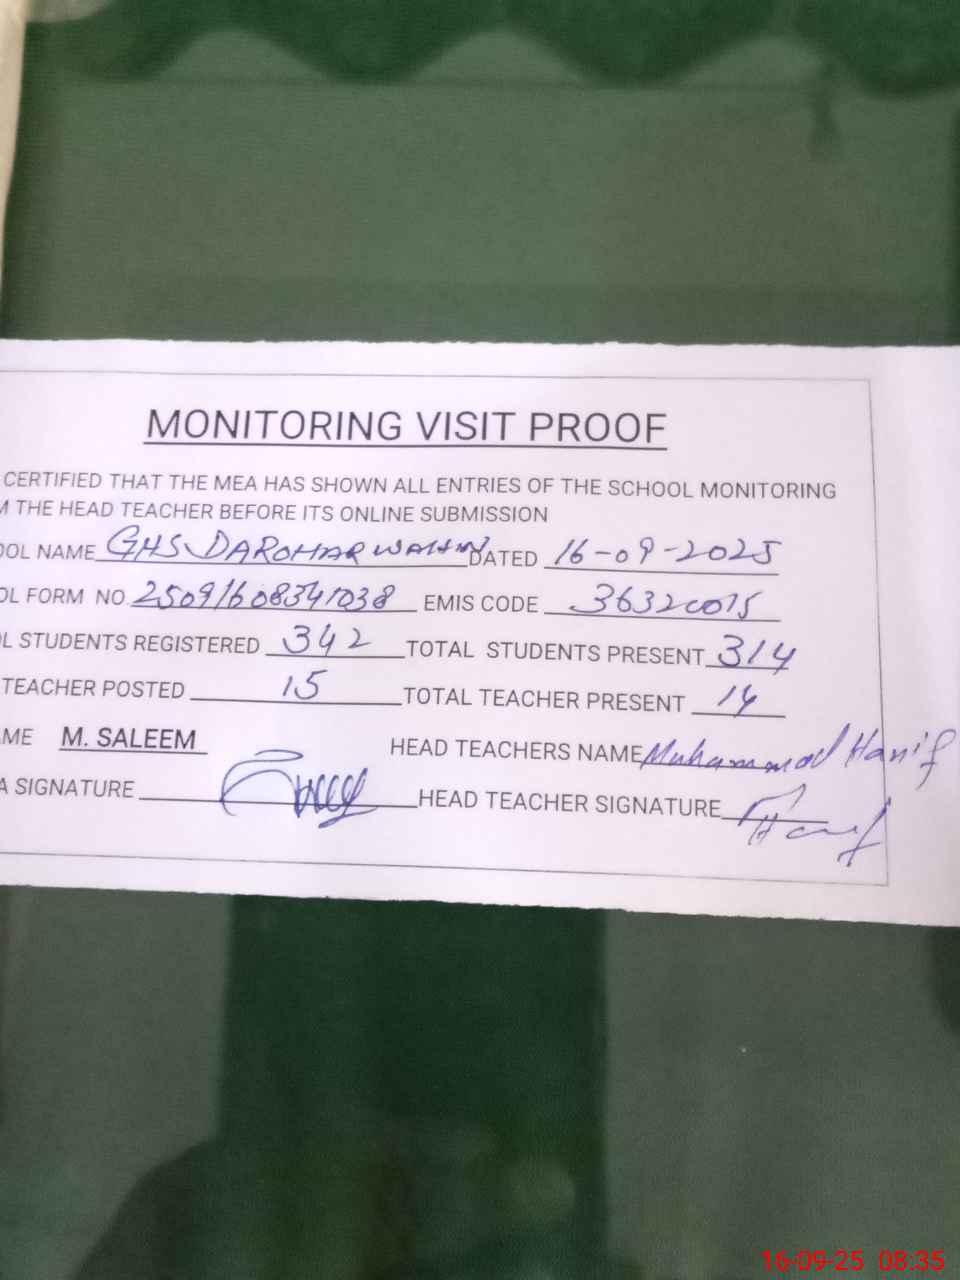 MONITORING VISIT PROOF
CERTIFIED THAT THE MEA HAS SHOWN ALL ENTRIES OF THE SCHOOL MONITORING
M THE HEAD TEACHER BEFORE ITS ONLINE SUBMISSION
OOL NAME GHS DAROHAR WAHIN DATED 16-09-2025
OL FORM NO 25091608341038 EMIS CODE 36320015
L STUDENTS REGISTERED 342 TOTAL STUDENTS PRESENT 314
TEACHER POSTED 15 TOTAL TEACHER PRESENT 14
ME M. SALEEM HEAD TEACHERS NAME Muhammad Hanif
A SIGNATURE HEAD TEACHER SIGNATURE Hanif
16-09-25 08:35